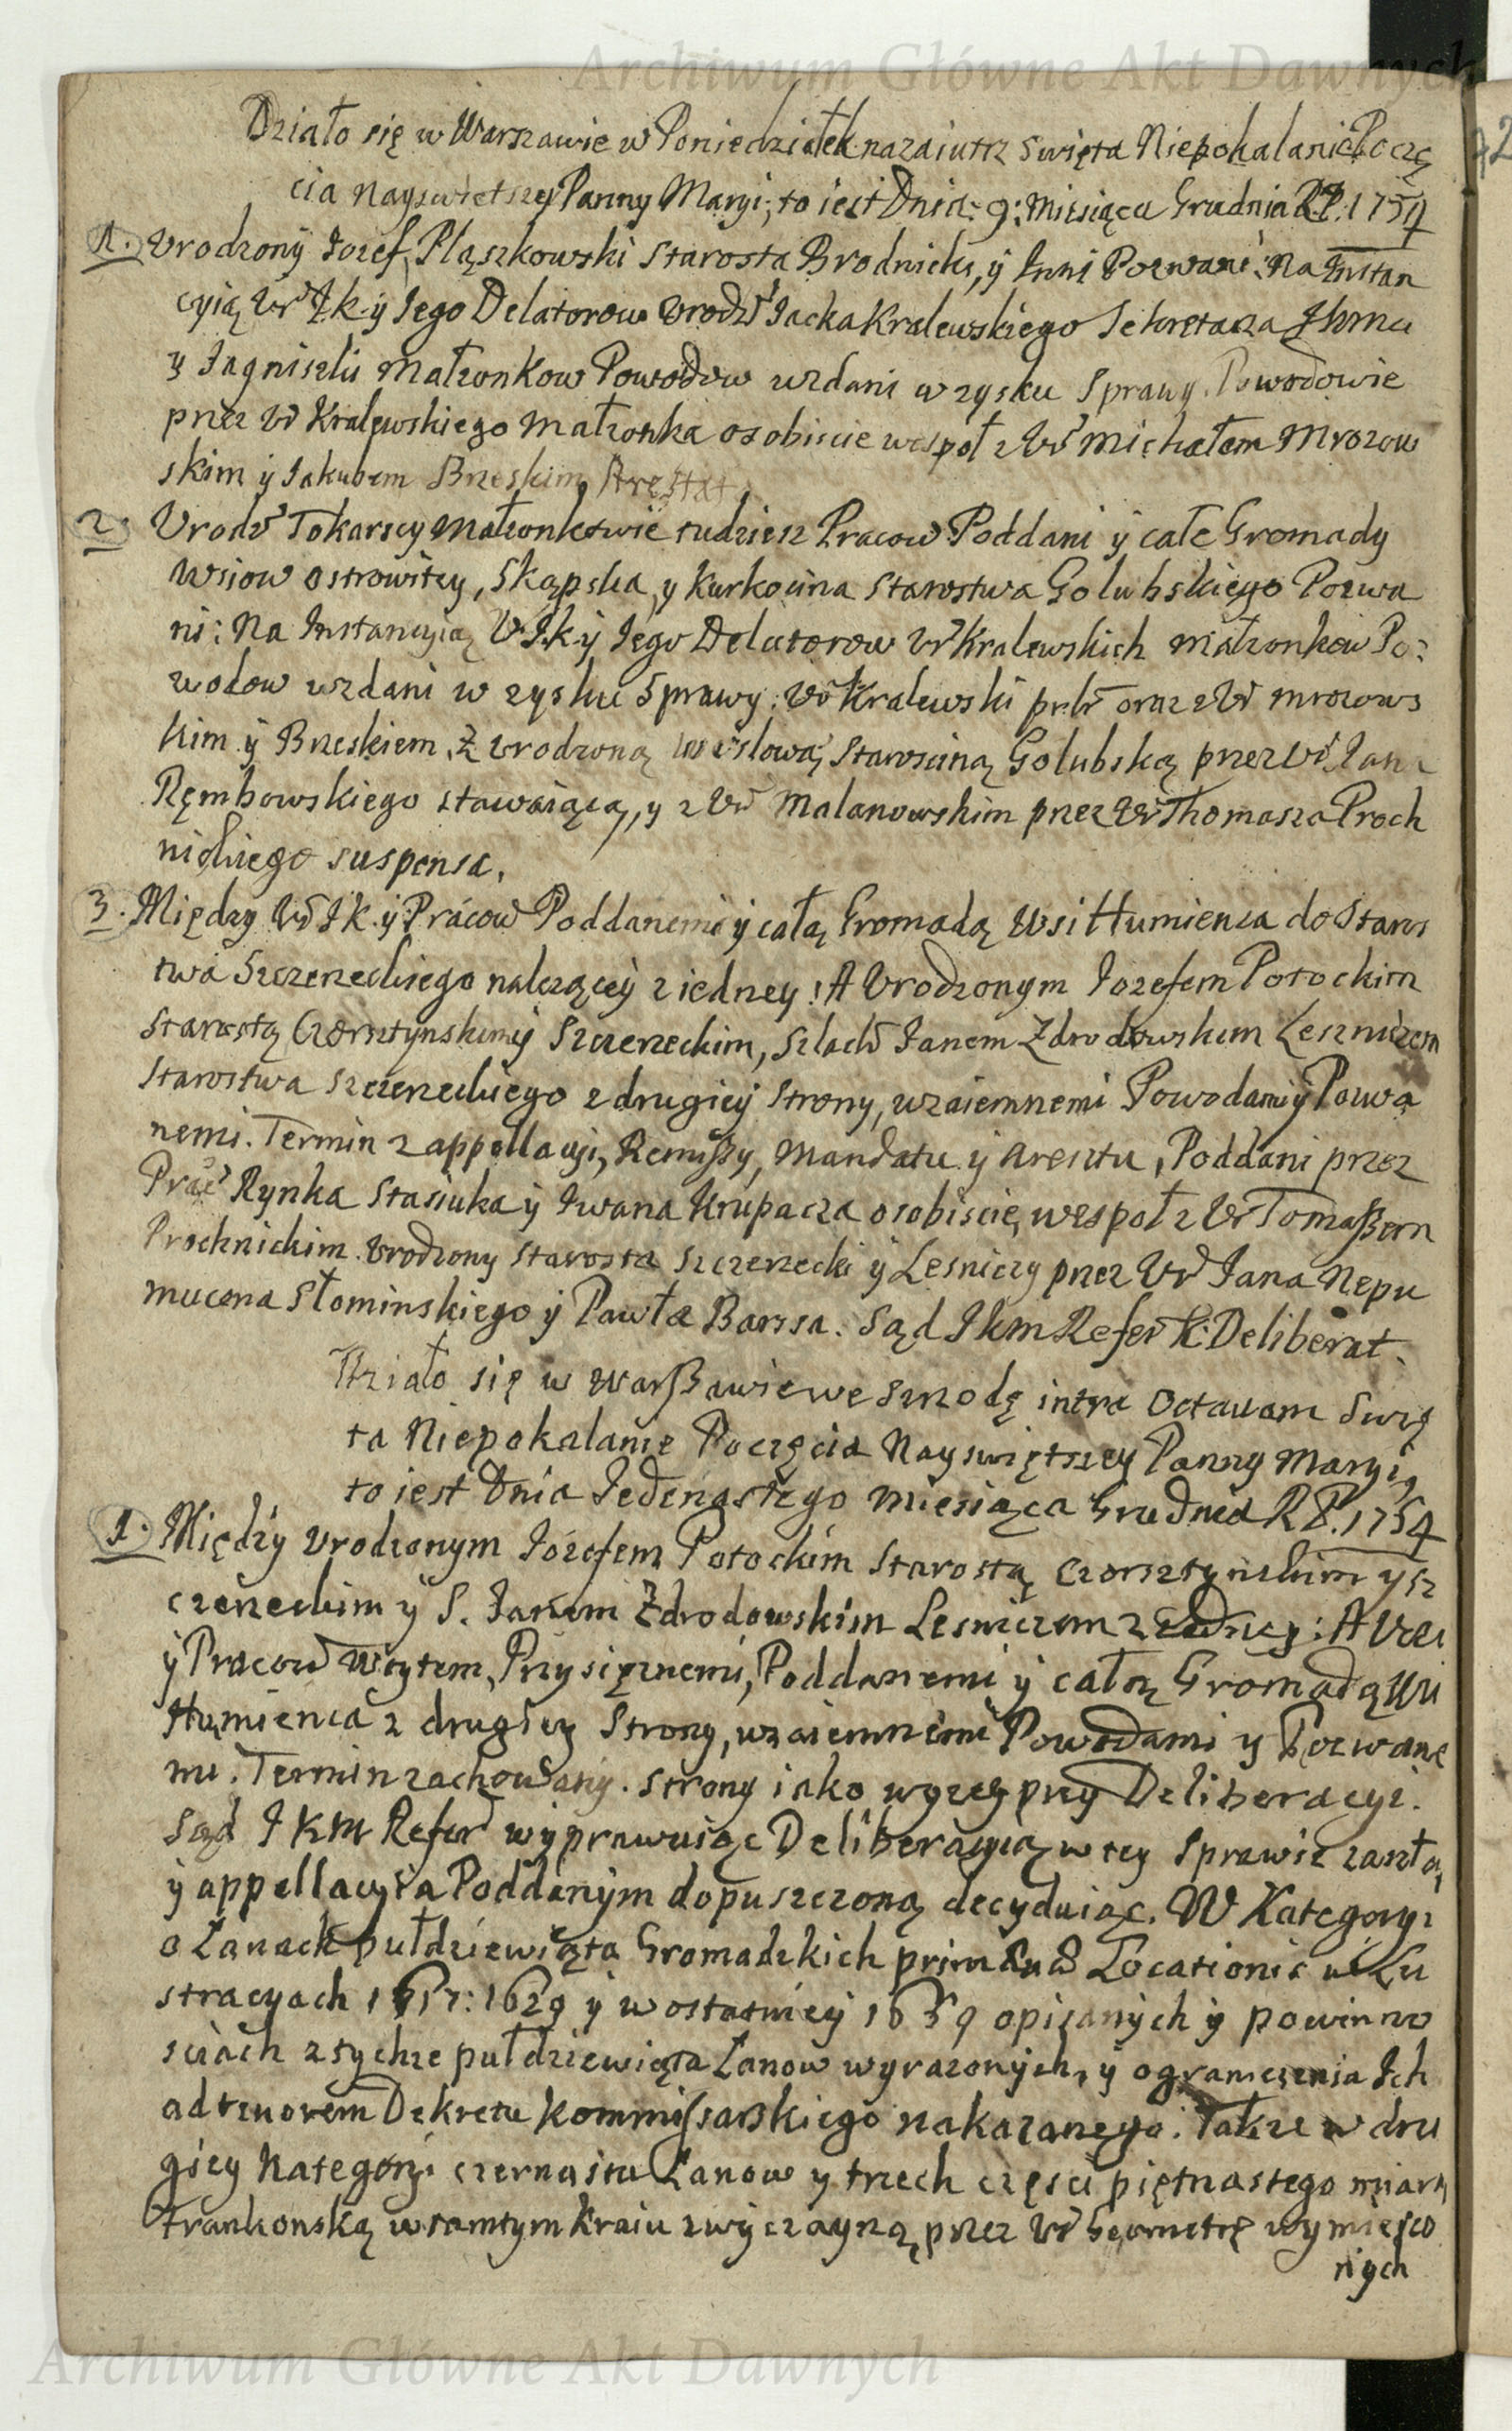 Archiwum Główne Akt Dawnych
Działo się w Warszawie w Poniedziałek nazaiutrz Swięta Niepokalanie Poczę
cia Nayswietszey Panny Maryi, to iest Dnia: 9: Miesiąca Grudnia R.P. 1754
1. Urodzony Iozef Pląszkowski Starosta Brodnicki, ÿ Inni Pozwani: Na Instan
cyią Ur IK ÿ Iego Delatorow Urodz Iacka Kralewskiego Sekretarza
y Iagniszki Małzonkow Powodow wzdani w zysku Sprawy. Powodowie
przez Ur Kralewskiego Małzonka osobiscie wespoł z Ur Michałem Mrozow
skim ÿ Iakubem Brzeskim
2. Urodz Tokarscy Małzonkowie tudziesz Pracow Poddani ÿ całe Gromady
Wsiow Ostrowitey, Skąpska, y Kurkocina Starostwa Golubskiego Pozwa
ni: Na Instancyią U IK ÿ Iego Delatorow Ur Kralewskich Małzonkow Po:
wodow wzdani w zysku Sprawy: Ur Kralewski oraz z Ur Mrozows
kim ÿ Brzeskiem, Z Urodzoną Starosciną Golubską przez Ur Iana
Ręmbowskiego stawaiącą, y z Ur Malanowskim przez Ur Thomasza Proch
nickiego suspensa.
3. Między Ur IK ÿ Pracow Poddanemi ÿ całą Gromadą Wsi Humienca do Staros
twa Szczerzeckiego nalezącÿ z iedney: A Urodzonym Iozefem Potockim
Starostą Czorsztynskim ÿ Szczerzeckim, Szlach Ianem Zdrodowskim Lesniczem
Starostwa Szczerzeckiego z drugiÿ Strony, wzaiemnemi Powodami ÿ Pozwa
nemi. Termin z appellacyi, Remissy, Mandatu ÿ Aresztu, Poddani przez
Prac Rynka Stasiuka ÿ Iwana Krupacza osobiscie, wespoł z Ur Tomaszem
Prochnickim. Urodzony Starosta Szczerzecki ÿ Lesniczy przez Ur Iana Nepu
mucena Słominskiego ÿ Pawła Barssa. Sąd IKM Refer K: Deliberat.
Działo się w Warszawie we Srzodę intra Octauam Swię
ta Niepokalanie Poczęcia Nayswiętszey Panny Maryi,
to iest Dnia Iedenastego Miesiąca Grudnia R.P. 1754
1. Między Urodzonym Iózefem Potockim Starostą Czorsztynskim y Sz
czerzeckim ÿ S. Ianem Zdrodowskim Lesniczem z iedney: A
ÿ Pracow Woytem, Przysięznemi, Poddanemi ÿ całą Gromadą
Humienca z drugiey Strony, wzaiemnemi Powodami y Pozwane
mi. Termin zachowany. Strony iako wyzey przy Deliberacyi.
Sąd IKM Refer wyprawuiąc Deliberacyią w tey Sprawie zaszłą,
ÿ appellacyia Poddanym dopuszczoną decyduiąc. W Kategoryi
o Łanach pułdziewięta Gromadzkich Locationis w Lu
stracyach 1629 ÿ w ostatniey opisanych ÿ powinno
sciach z tychze pułdziewięta Łanow wyrazonych, y ograniczenia Ich
ad tenorem Dekretu Kommissarskiego nakazanego. Takze w dru
giey Kategoryi czternastu Łanow y trzech częsci piętnastego miarą
Frankonską w tamtym Kraiu zwyczayną, przez Ur Geometrę wymierzo
nych
Archiwum Główne Akt Dawnych